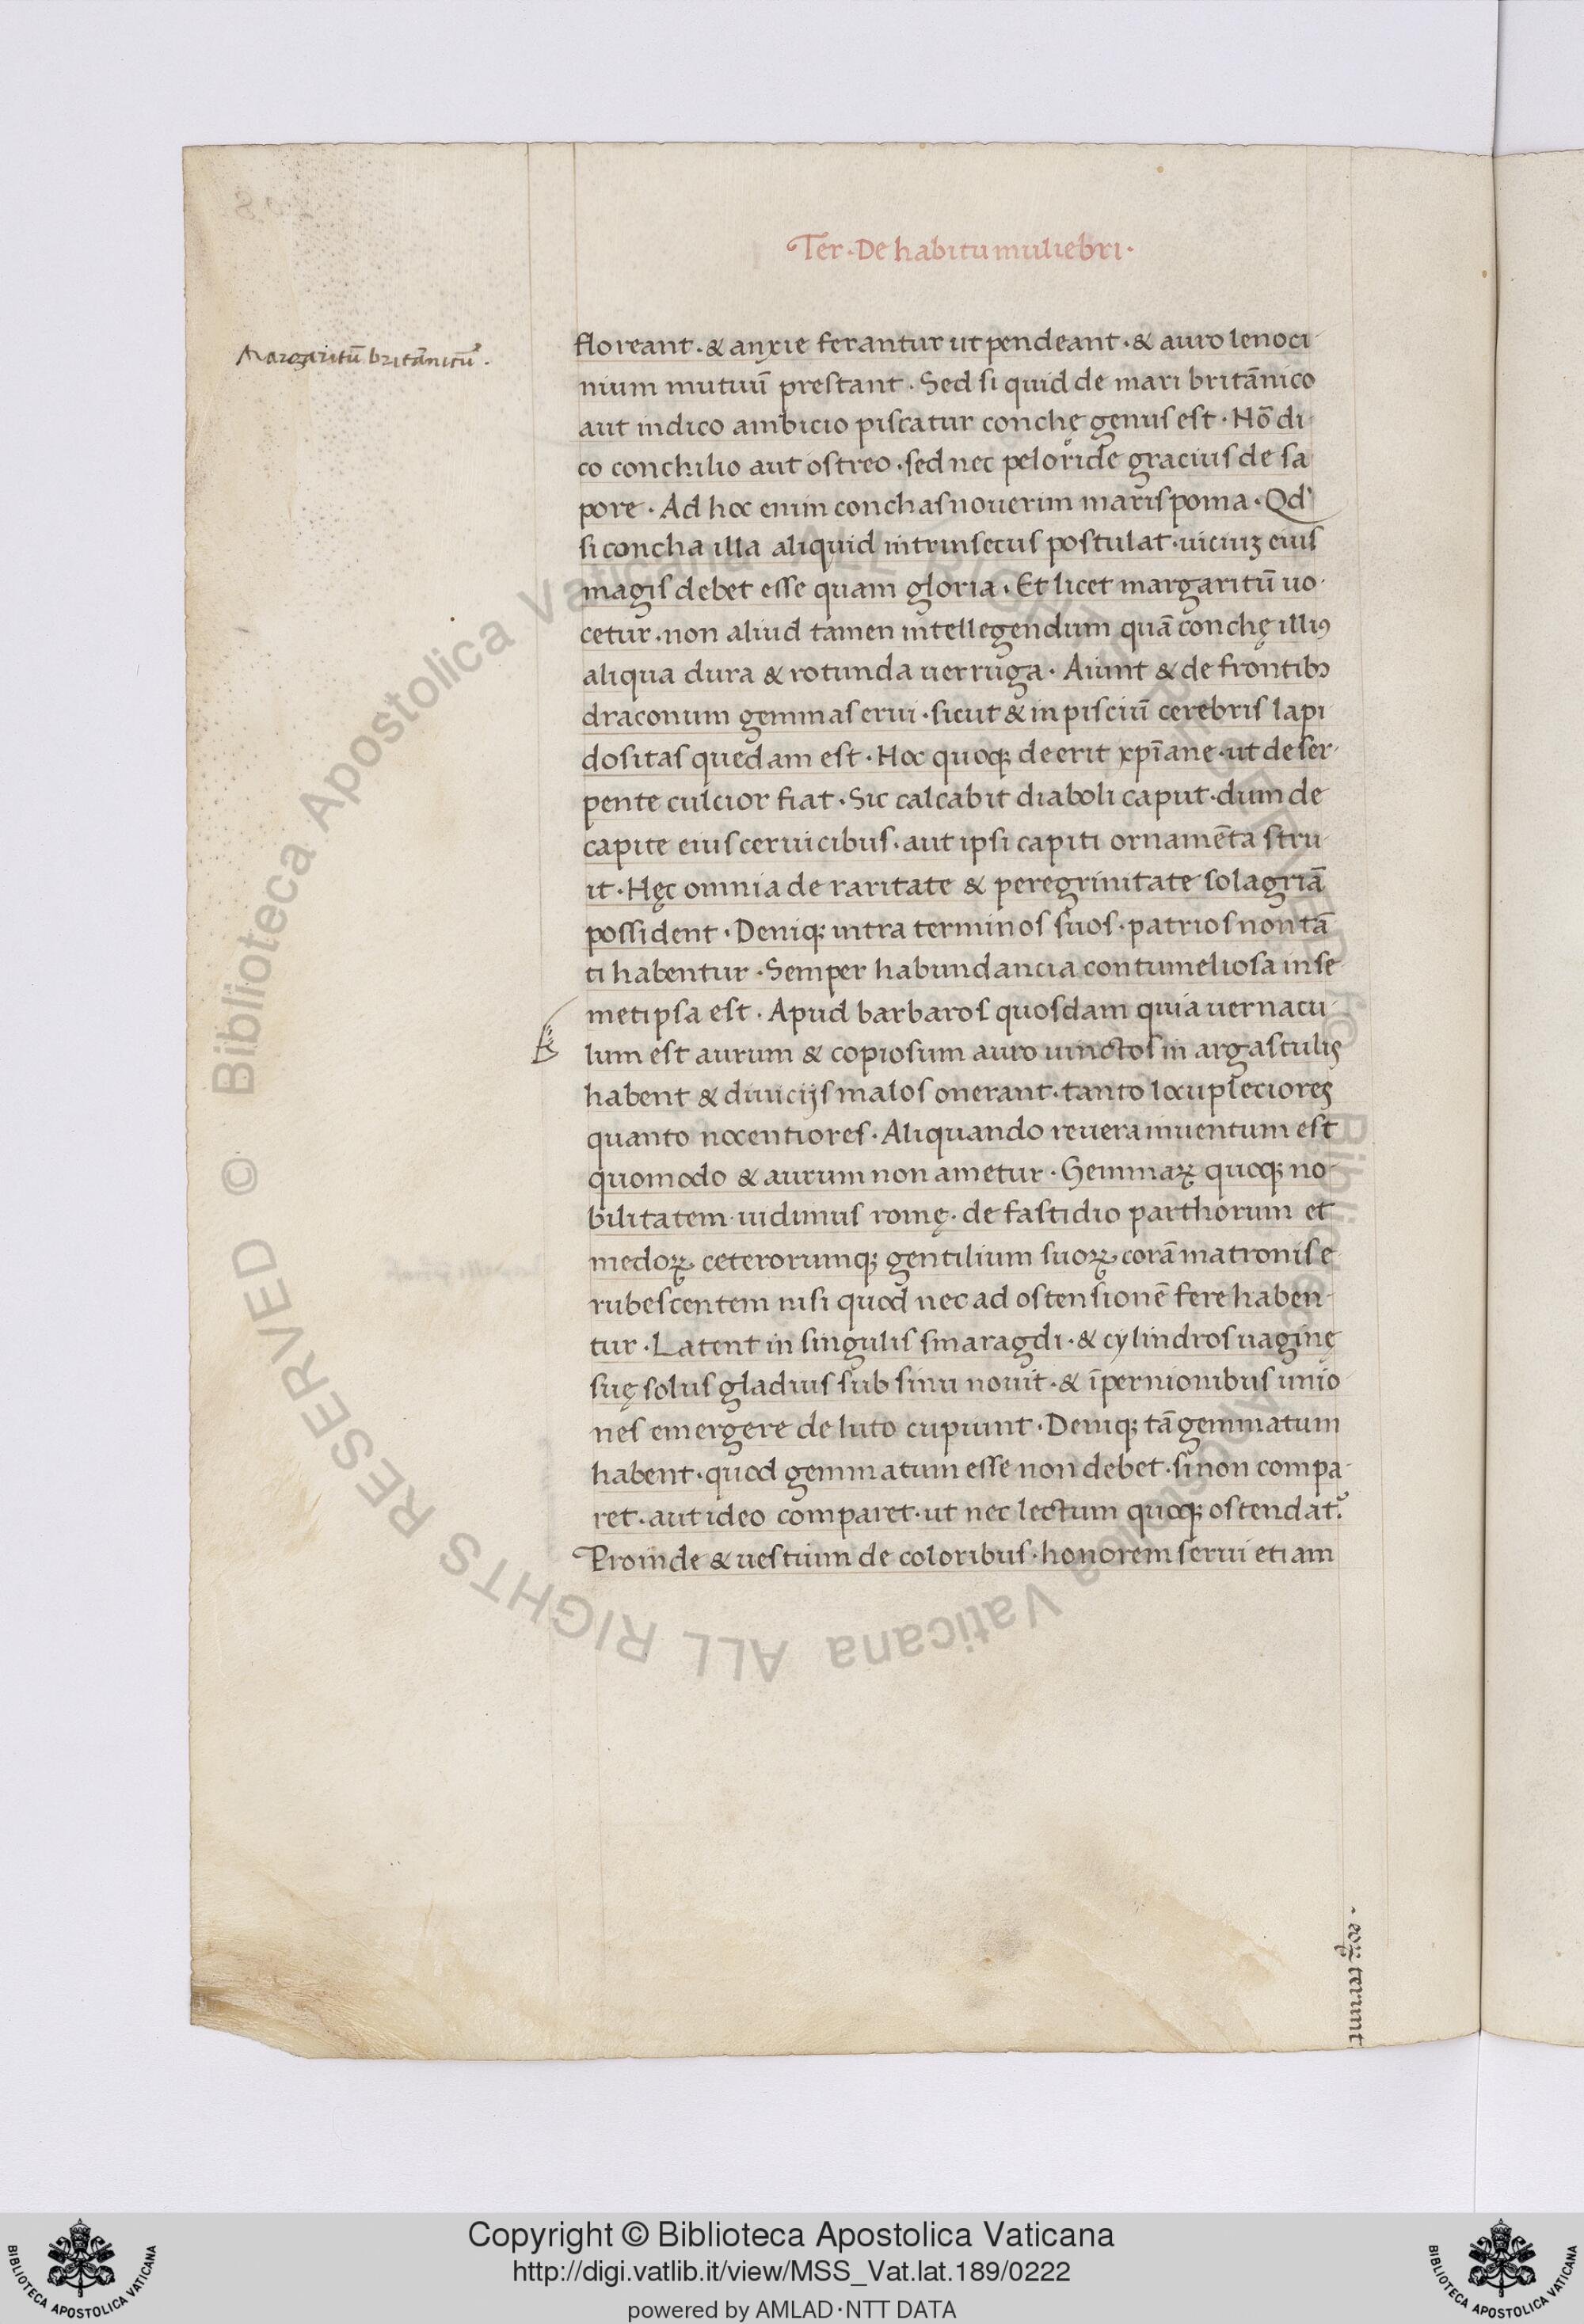 Ter · De habitu muliebri ·
Margaritū britānicũ ·
floreant · & anxie ferantur ut pendeant · & auro lenoci-
nium mutuū prestant · Sed si quid de mari britānico
aut indico ambicio piscatur conchę genus est · Nō di-
co conchilio aut ostreo · sed nec peloride gracius de sa
pore · Ad hoc enim conchas noverim maris poma · Qd'
si concha illa aliquid intrinsecus postulat · uiciuꝫ eius
magis debet esse quam gloria · Et licet margaritū uo-
cetur · non aliud tamen intellegendum quā conchę illiꝰ
aliqua dura & rotunda uerruga · Aiunt & de frontibꝫ
draconum gemmas erui · sicut & in pisciū cerebris lapi
dositas quedam est · Hoc quoqꝫ deerit xp̄iane · ut de ser-
pente culcior fiat · Sic calcabit diaboli caput · dum de
capite eius ceruicibus · aut ipsi capiti ornamēta stru-
it · Hęc omnia de raritate & peregrinitate sola gr̄iā
possident · Deniqꝫ intra terminos suos · patrios non tā
ti habentur · Semper habundancia contumeliosa in se
metipsa est · Apud barbaros quosdam quia uernacu-
lum est aurum & copiosum auro uinctos in argastulis
habent & diuicijs malos onerant · tanto locupleciores
quanto nocentiores · Aliquando reuera inuentum est
quomodo & aurum non ametur · Gemmaꝝ quoqꝫ no-
bilitatem uidimus romę · de fastidio parthorum et
medoꝝ · ceterorumqꝫ gentilium suoꝝ · corā matronis e
rubescentem nisi quod nec ad ostensionē fere haben-
tur · Latent in singulis smaragdi · & cylindros uaginę
suę solus gladius sub sinu nouit · & īpernionibus unio
nes emergere de luto cupiunt · Deniqꝫ tā gemmatum
habent · quod gemmatum esse non debet · si non compa-
ret · aut ideo comparet · ut nec lectum quoqꝫ ostendat~.
Proinde & uestium de coloribus · honorem serui etiam
· eoꝝ terunt
© Biblioteca Apostolica Vaticana ALL RIGHTS RESERVED © Biblioteca Apostolica Vaticana ALL RIGHTS RESERVED
BIBLIOTECA APOSTOLICA VATICANA
Copyright © Biblioteca Apostolica Vaticana
http://digi.vatlib.it/view/MSS_Vat.lat.189/0222
powered by AMLAD·NTT DATA
BIBLIOTECA APOSTOLICA VATICANA